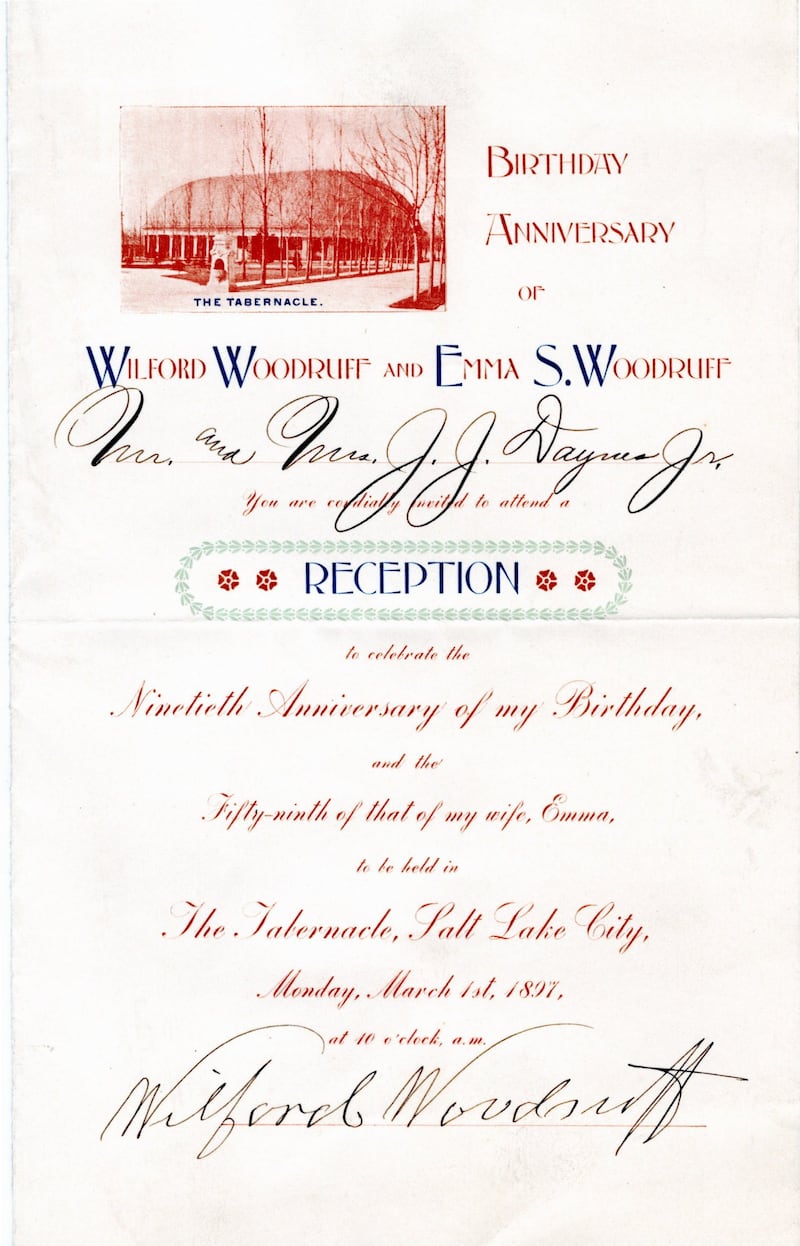 THE TABERNACLE.
BIRTHDAY
ANNIVERSARY
OF
WILFORD WOODRUFF AND EMMA S. WOODRUFF
Mr. and Mrs. J. J. Daynes Jr.
You are cordially invited to attend a
RECEPTION
to celebrate the
Ninetieth Anniversary of my Birthday,
and the
Fifty-ninth of that of my wife, Emma,
to be held in
The Tabernacle, Salt Lake City,
Monday, March 1st, 1897,
at 10 o'clock, a.m.
Wilford Woodruff